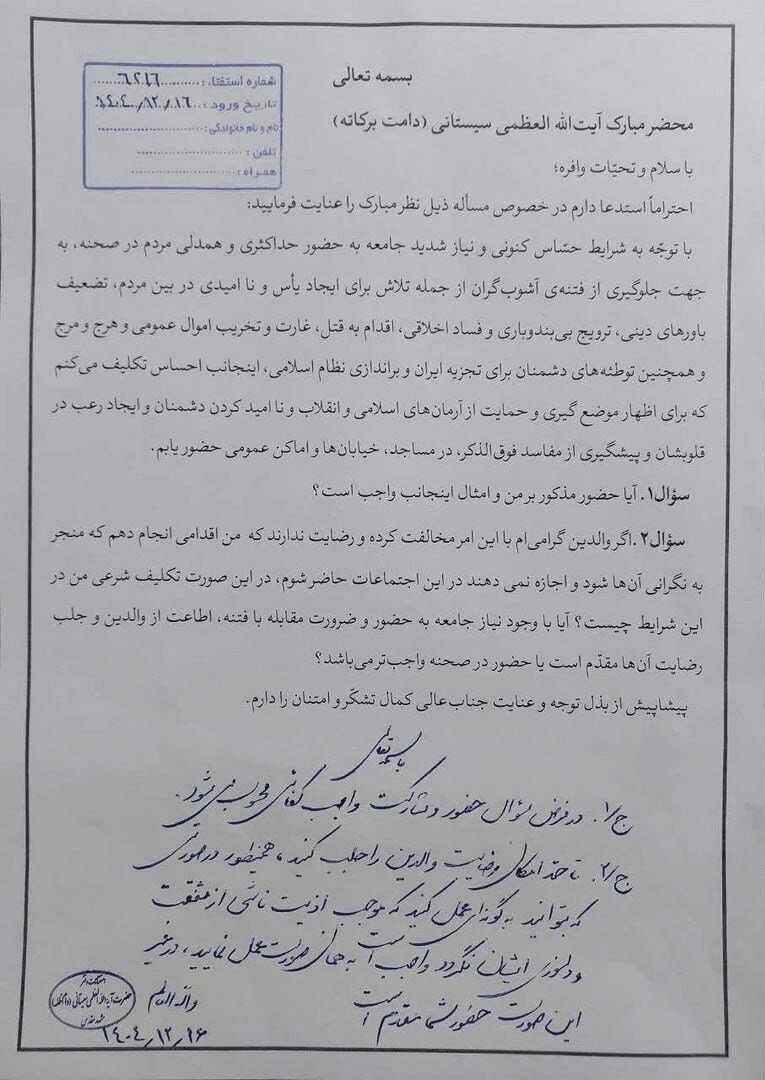 بسمه تعالی
شماره استفتاء: ۶۲۱۶
تاریخ ورود: ۱۴۰۴/۱۲/۱۶
نام و نام خانوادگی:
تلفن:
همراه:
محضر مبارک آیت‌الله العظمی سیستانی (دامت برکاته)
با سلام و تحیّات وافره؛
احتراماً استدعا دارم در خصوص مسأله ذیل نظر مبارک را عنایت فرمایید:
با توجّه به شرایط حسّاس کنونی و نیاز شدید جامعه به حضور حداکثری و همدلی مردم در صحنه، به
جهت جلوگیری از فتنه‌ی آشوب‌گران از جمله تلاش برای ایجاد یأس و نا امیدی در بین مردم، تضعیف
باورهای دینی، ترویج بی‌بندوباری و فساد اخلاقی، اقدام به قتل، غارت و تخریب اموال عمومی و هرج و مرج
و همچنین توطئه‌های دشمنان برای تجزیه ایران و براندازی نظام اسلامی، اینجانب احساس تکلیف می‌کنم
که برای اظهار موضع گیری و حمایت از آرمان‌های اسلامی و انقلاب و نا امید کردن دشمنان و ایجاد رعب در
قلوبشان و پیشگیری از مفاسد فوق‌الذکر، در مساجد، خیابان‌ها و اماکن عمومی حضور یابم.
سؤال۱. آیا حضور مذکور بر من و امثال اینجانب واجب است؟
سؤال۲. اگر والدین گرامی‌ام با این امر مخالفت کرده و رضایت ندارند که من اقدامی انجام دهم که منجر
به نگرانی آن‌ها شود و اجازه نمی دهند در این اجتماعات حاضر شوم، در این صورت تکلیف شرعی من در
این شرایط چیست؟ آیا با وجود نیاز جامعه به حضور و ضرورت مقابله با فتنه، اطاعت از والدین و جلب
رضایت آن‌ها مقدّم است یا حضور در صحنه واجب‌تر می‌باشد؟
پیشاپیش از بذل توجه و عنایت جناب‌عالی کمال تشکّر و امتنان را دارم.
باسمه تعالی
ج/۱. در فرض سؤال حضور و مشارکت واجب کفائی محسوب می شود.
ج/۲. تا حدّ امکان رضایت والدین را جلب کنید، همینطور در صورتی
که بتوانید به گونه‌ای عمل کنید که موجب اذیت ناشی از شفقت
و دلسوزی ایشان نگردد واجب است به همان صورت عمل نمایید، در غیر
این صورت حضور شما مقدم است
والله العالم
حضرت آیة الله العظمی سیستانی (دام ظله)
مشهد مقدس
۱۴۰۴/۱۲/۱۶